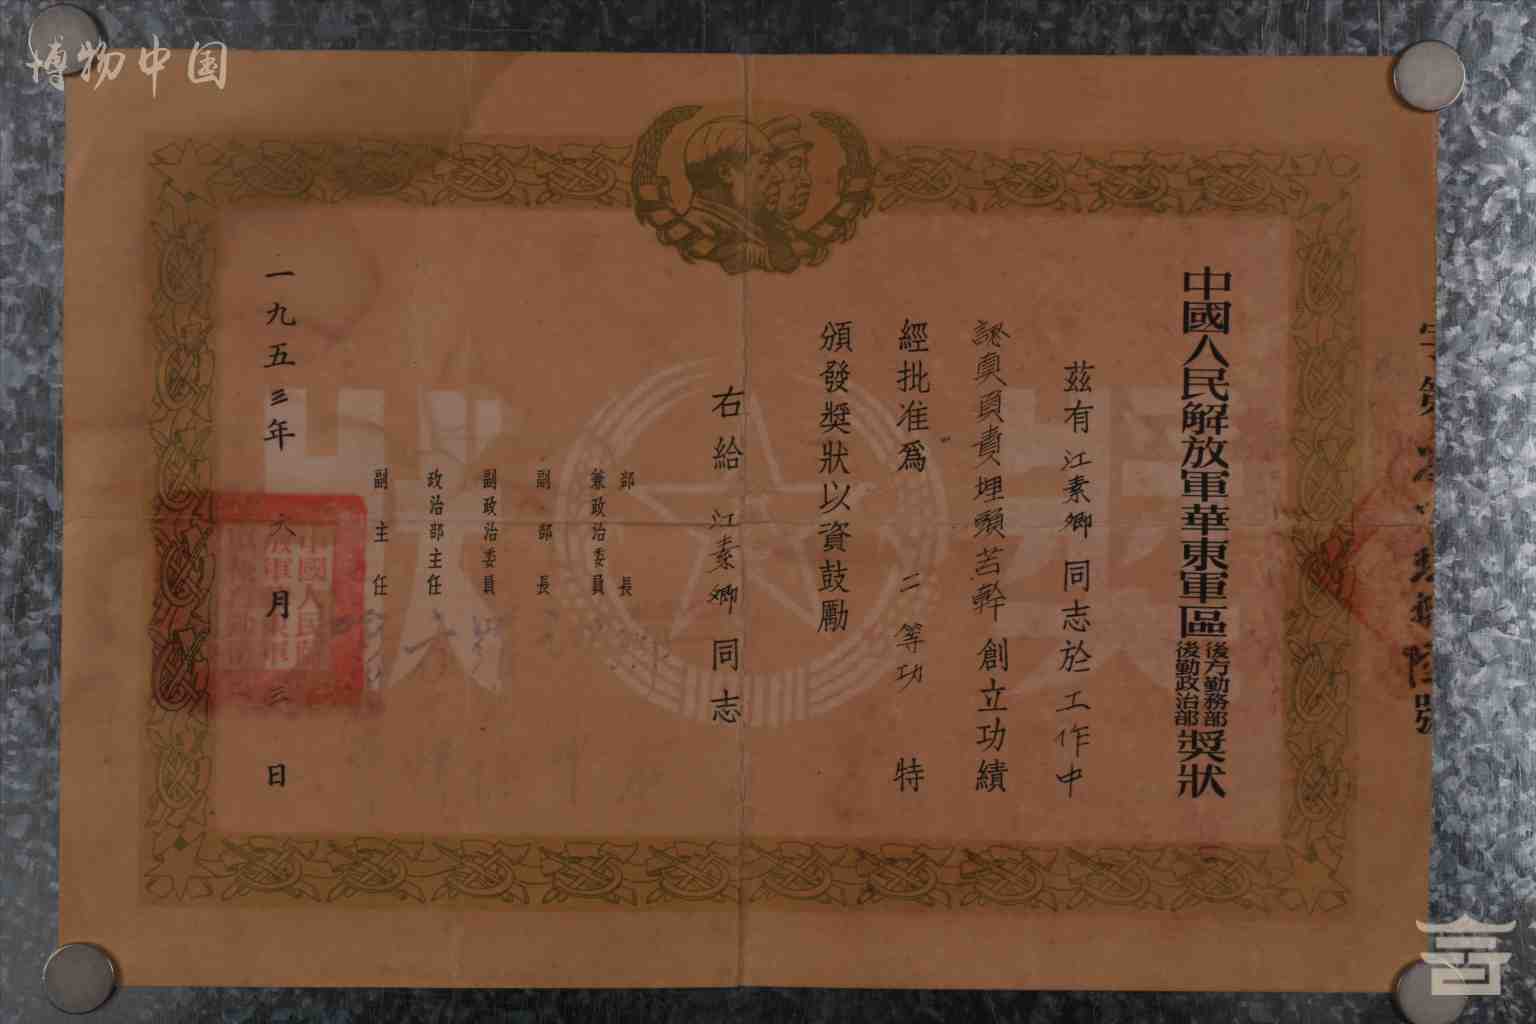 博物中国
中國人民解放軍華東軍區後方勤務部後勤政治部獎狀
茲有江素卿同志於工作中
認真負責埋頭苦幹創立功績
經批准為二等功特
頒發獎狀以資鼓勵
右給江素卿同志
部長
兼政治委員
副部長
副政治委員
政治部主任
副主任
一九五三年六月三日
獎狀